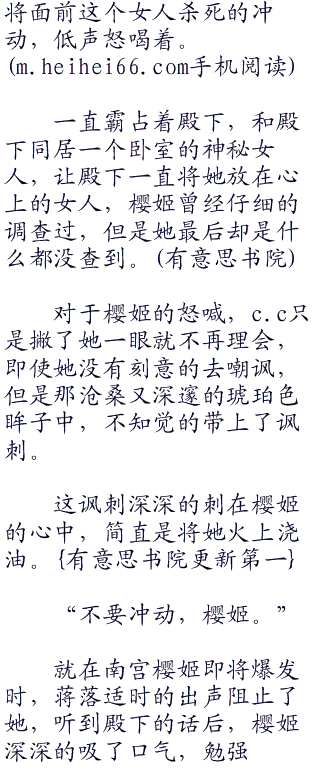 将面前这个女人杀死的冲
动，低声怒喝着。
(m.heihei66.com手机阅读)
一直霸占着殿下，和殿
下同居一个卧室的神秘女
人，让殿下一直将她放在心
上的女人，樱姬曾经仔细的
调查过，但是她最后却是什
么都没查到。(有意思书院)
对于樱姬的怒喊，c.c只
是撇了她一眼就不再理会，
即使她没有刻意的去嘲讽，
但是那沧桑又深邃的琥珀色
眸子中，不知觉的带上了讽
刺。
这讽刺深深的刺在樱姬
的心中，简直是将她火上浇
油。{有意思书院更新第一}
“不要冲动，樱姬。”
就在南宫樱姬即将爆发
时，蒋落适时的出声阻止了
她，听到殿下的话后，樱姬
深深的吸了口气，勉强